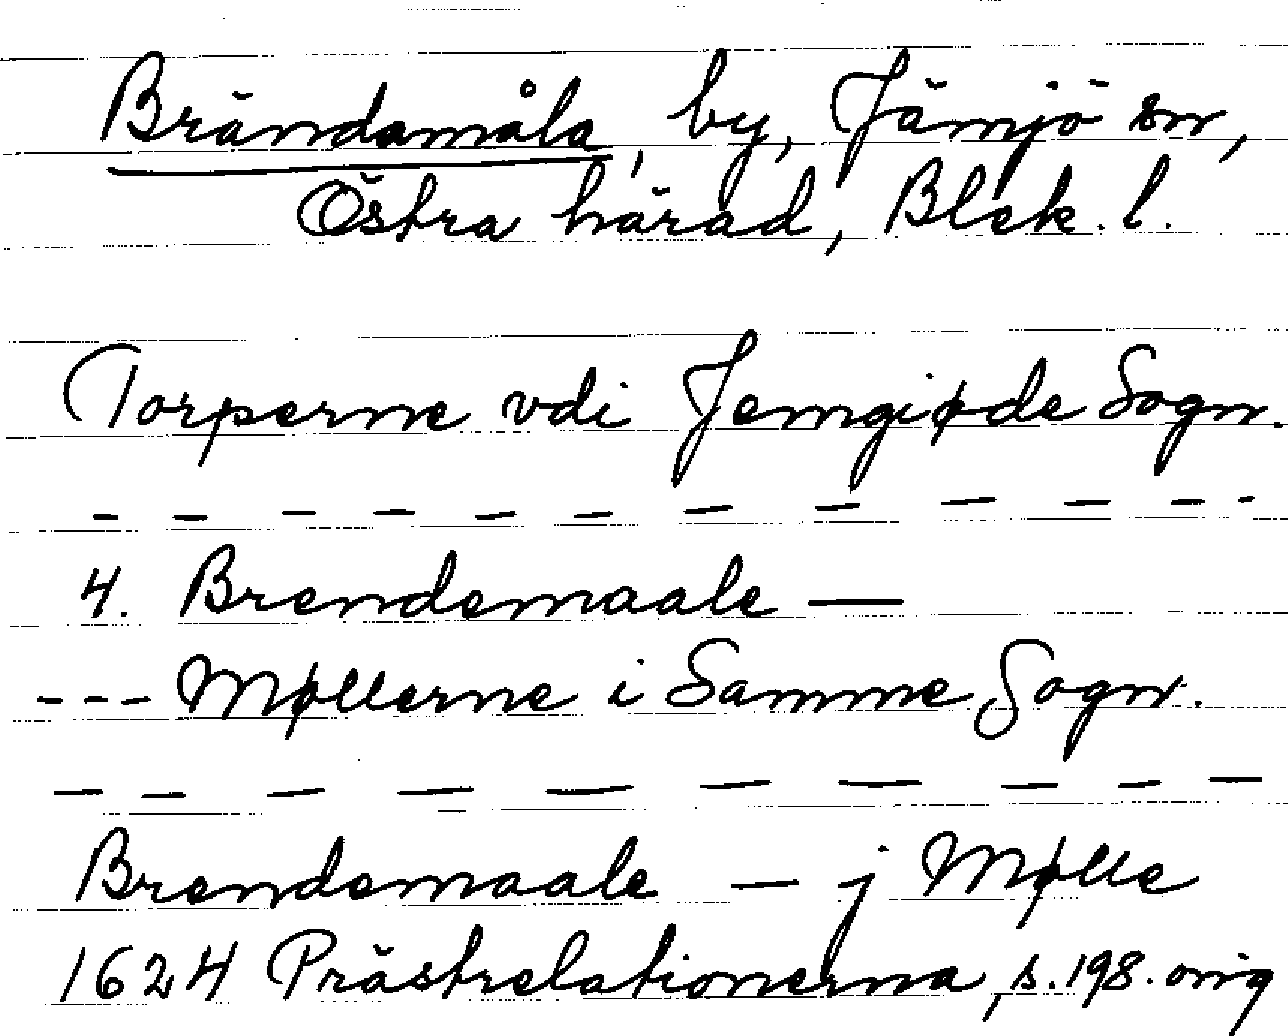 Brändamåla, by, Jämjö sn,
Östra härad, Blek. l.
Torperne vdi Jemgiøde Sogn.
– – – – – – – – – – – – –
4. Brendemaale —
--- Møllerne i Samme Sogn.
– – – – – – – – – –
Brendemaale — j Mølle
1624 Prästrelationerna, s. 198. orig